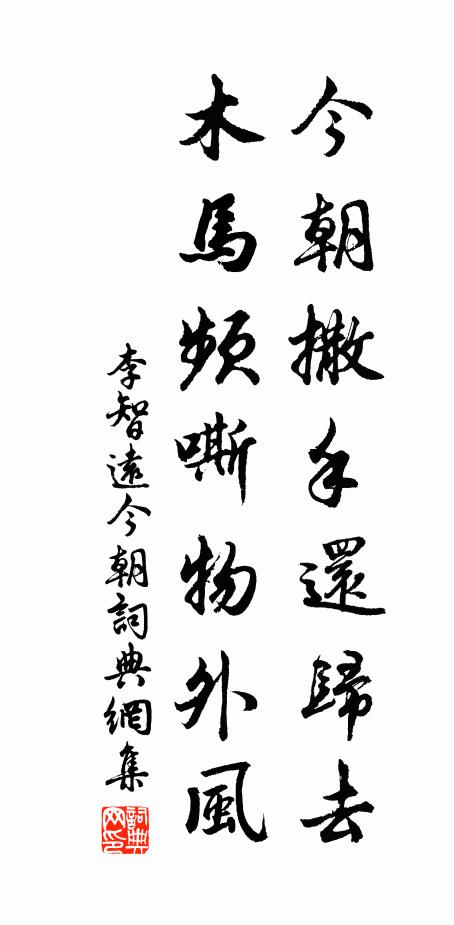 今朝撒手還歸去
木馬頻嘶物外風
李智遠今朝詞典網集
詞典网印